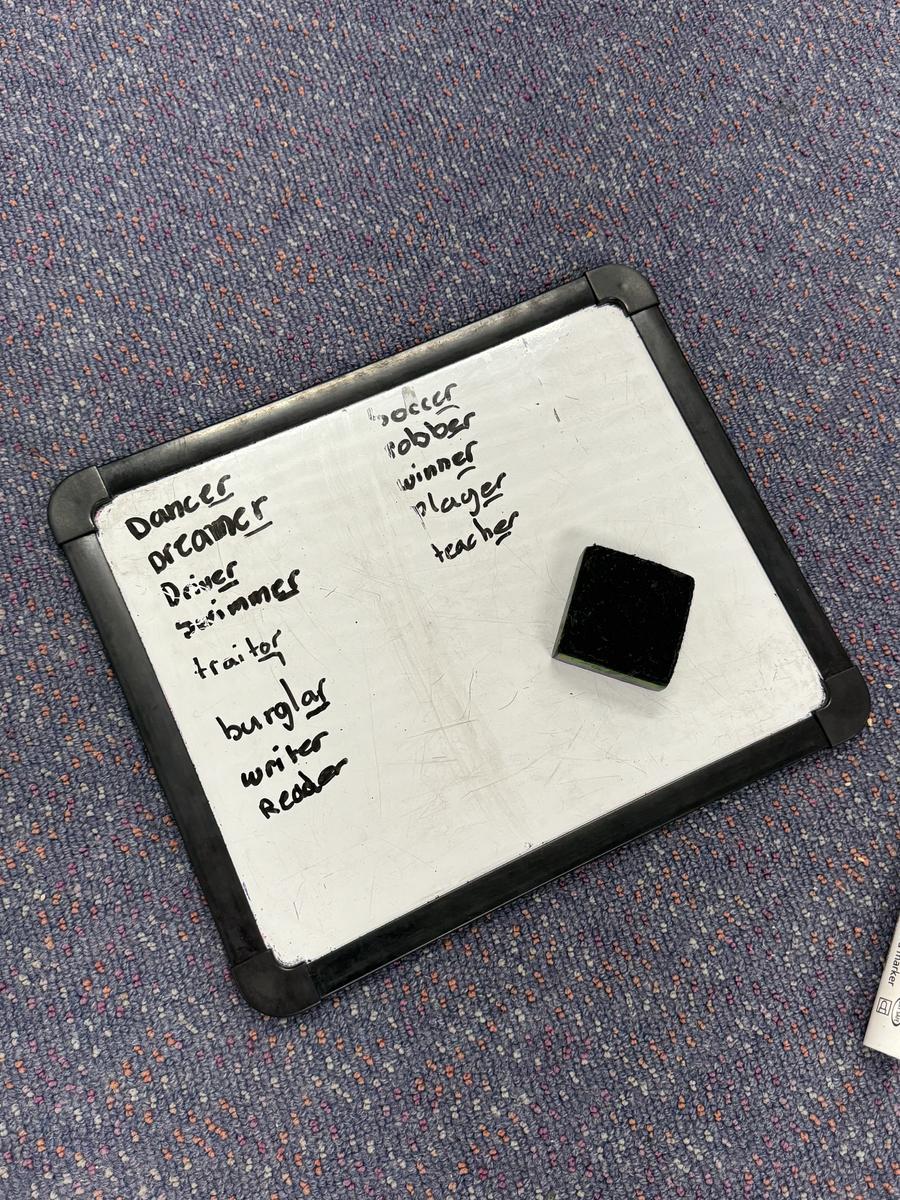 Dancer
Dreamer
Driver
swimmer
traitor
burglar
writer
Reader
soccer
robber
winner
player
teacher
marker